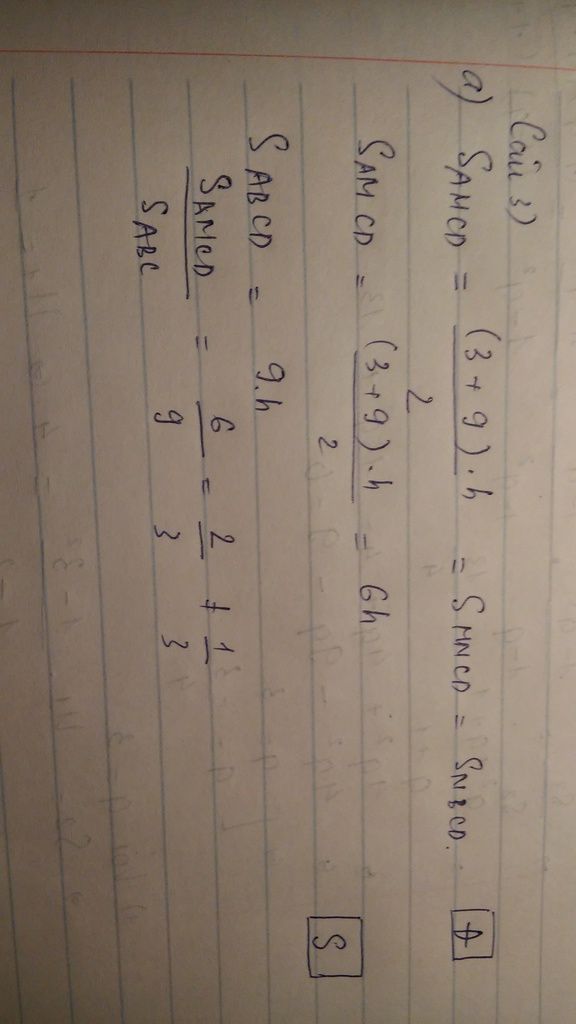 Câu 3)
a) S AMCD = (3 + 9).h / 2 = S MNCD = S NBCD. Đ
S AMCD = (3 + 9).h / 2 = 6h
S
S ABCD = 9.h
S AMCD / S ABC = 6 / 9 = 2 / 3 ≠ 1 / 3